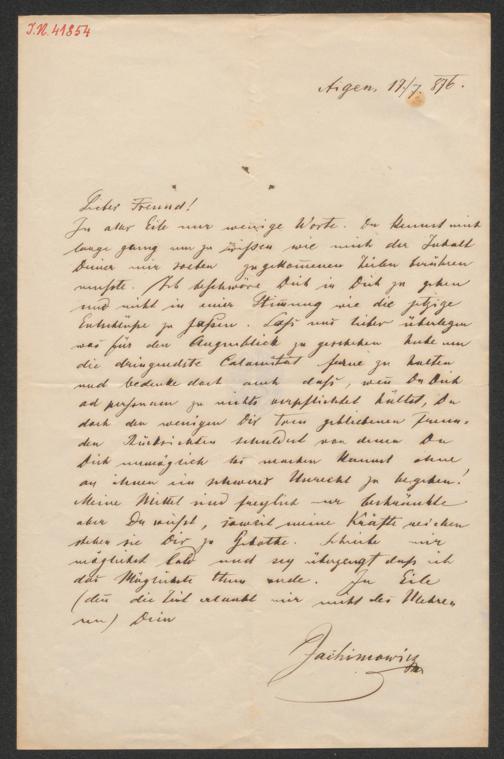 I.N. 41854
Aigen, 17/7. 876.
Lieber Freund!
In aller Eile nur wenige Worte. Du kennst mich
lange genug um zu wissen wie mich der Inhalt
Deiner mir soeben zugekommenen Zeilen berühren
musste. Ich beschwöre Dich in Dich zu gehen
und nicht in einer Stimmung wie die jetzige
Entschlüsse zu fassen. Lass uns lieber überlegen
was für den Augenblick zu geschehen habe um
die dringendste Calamität ferne zu halten
und bedenke doch auch dass, wenn Du Dich
ad personam zu nichts verpflichtet hältst, Du
doch den wenigen Dir treu gebliebenen Freun-
den Rücksichten schuldest von denen Du
Dich unmöglich los machen kannst ohne
an ihnen ein schweres Unrecht zu begehen!
Meine Mittel sind freylich nur beschränkte
aber Du weisst, soweit meine Kräfte reichen
stehen sie Dir zu Gebothe. Schreibe mir
möglichst bald und sey überzeugt dass ich
das Möglichste thun werde. In Eile
(denn die Zeit erlaubt mir nicht des Mehre-
ren) Dein
Jachimowicz